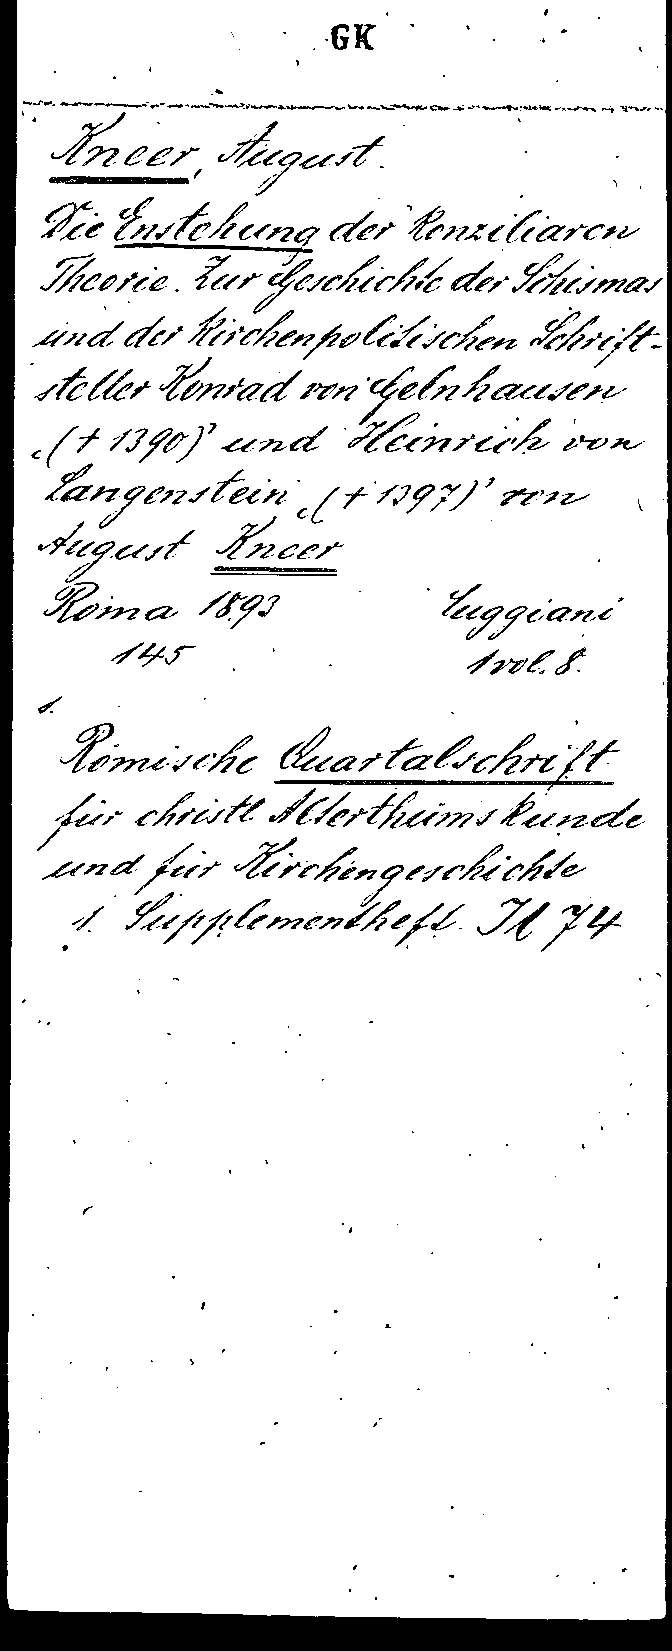 GK
Kneer, August.
Die Enstehung der Konziliaren
Theorie. Zur Geschichte der Schismas
und der Kirchenpolitischen Schrift-
steller Konrad von Gelnhausen
„(† 1390)" und Heinrich von
Langenstein „(† 1397)" von
August Kneer
Roma 1893 Cuggiani
145 1 vol. 8.
1.
Römische Quartalschrift
für christl Alterthumskunde
und für Kirchengeschichte
1. Supplementheft. 74